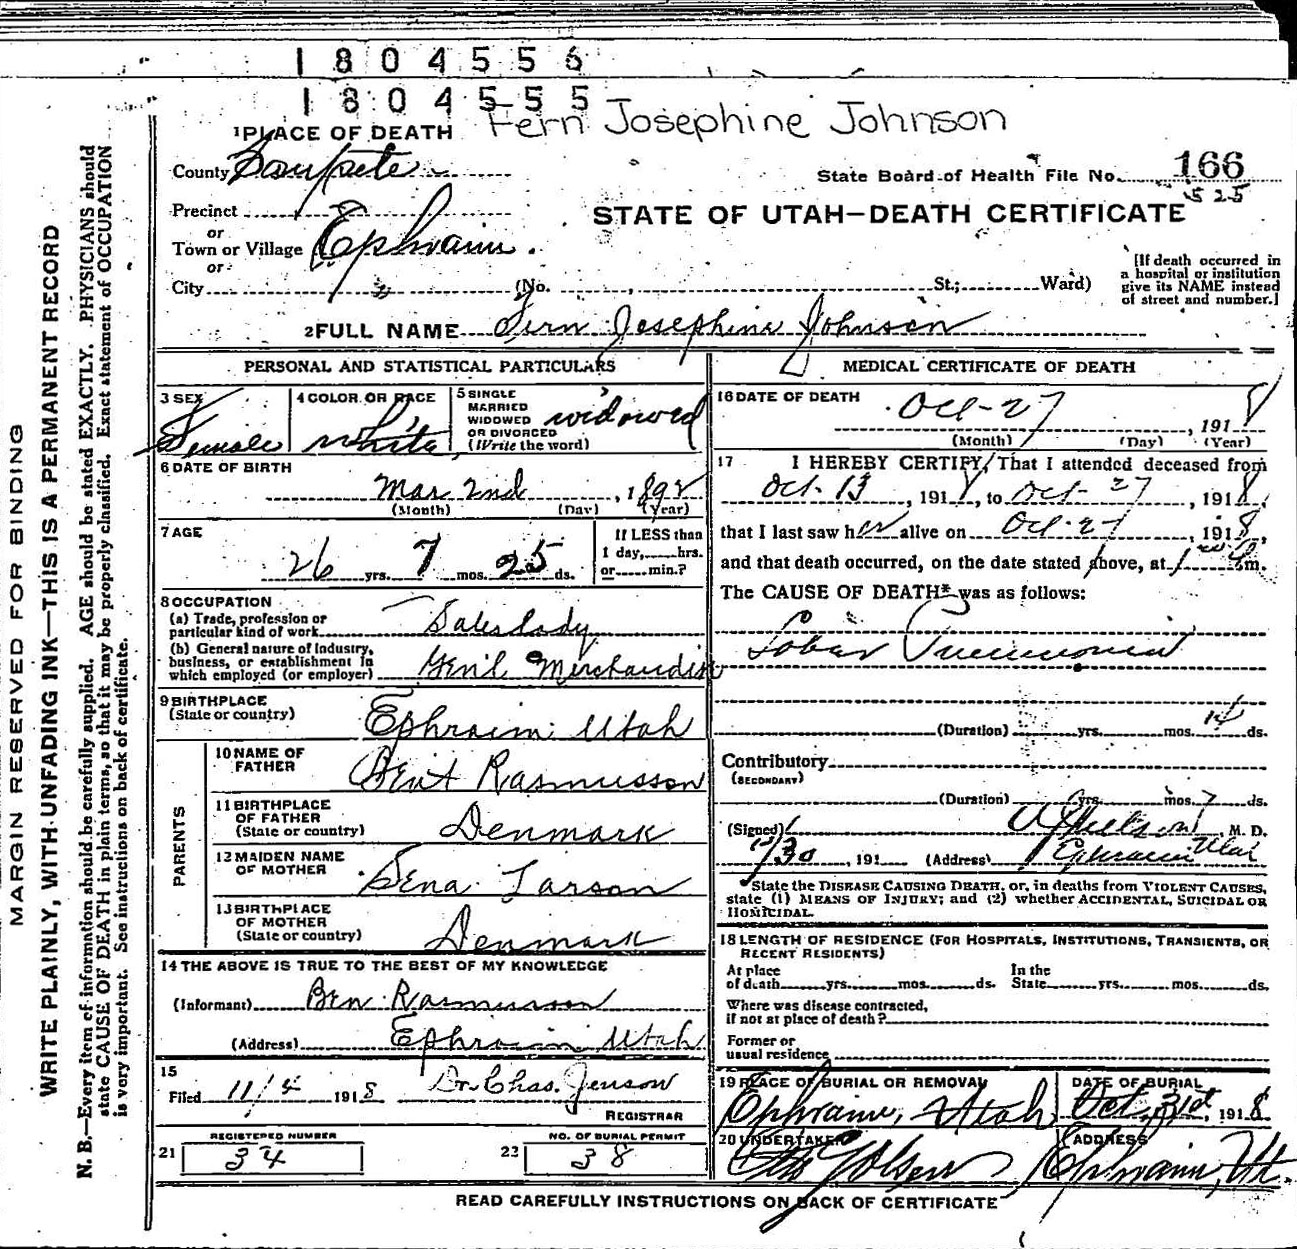 1 8 0 4 5 5 6
1 8 0 4 5 5 5
Fern Josephine Johnson
1 PLACE OF DEATH
County Sanpete
State Board of Health File No. 166
525
Precinct
or
Town or Village Ephraim.
or
City (No. St.; Ward)
STATE OF UTAH—DEATH CERTIFICATE
[If death occurred in
a hospital or institution
give its NAME instead
of street and number.]
2 FULL NAME Fern Josephine Johnson
PERSONAL AND STATISTICAL PARTICULARS
3 SEX Female
4 COLOR OR RACE white
5 SINGLE
MARRIED
WIDOWED
OR DIVORCED
(Write the word)
widowed
6 DATE OF BIRTH
Mar 2nd, 1892
(Month) (Day) (Year)
7 AGE
26 yrs. 7 mos. 25 ds.
If LESS than
1 day, hrs.
or min.?
8 OCCUPATION
(a) Trade, profession or
particular kind of work Saleslady
(b) General nature of Industry,
business, or establishment in
which employed (or employer) Gen'l Merchandise
9 BIRTHPLACE
(State or country) Ephraim Utah
PARENTS
10 NAME OF
FATHER Bent Rasmusson
11 BIRTHPLACE
OF FATHER
(State or country) Denmark
12 MAIDEN NAME
OF MOTHER Sena Larson
13 BIRTHPLACE
OF MOTHER
(State or country) Denmark
14 THE ABOVE IS TRUE TO THE BEST OF MY KNOWLEDGE
(Informant) Ben Rasmusson
(Address) Ephraim Utah
15
Filed 11/4 1918 Dr. Chas. Jenson
REGISTRAR
REGISTERED NUMBER
21 34
NO. OF BURIAL PERMIT
22 38
MEDICAL CERTIFICATE OF DEATH
16 DATE OF DEATH
Oct-27, 1918
(Month) (Day) (Year)
17 I HEREBY CERTIFY, That I attended deceased from
Oct. 13, 1918, to Oct-27, 1918,
that I last saw her alive on Oct-27, 1918,
and that death occurred, on the date stated above, at m.
The CAUSE OF DEATH* was as follows:
Lobar Pneumonia
(Duration) yrs. mos. 14 ds.
Contributory
(SECONDARY)
(Duration) yrs. mos. ds.
(Signed) Nielson, M. D.
30, 191 (Address) Ephraim Utah
*State the DISEASE CAUSING DEATH, or, in deaths from VIOLENT CAUSES,
state (1) MEANS OF INJURY; and (2) whether ACCIDENTAL, SUICIDAL OR
HOMICIDAL.
18 LENGTH OF RESIDENCE (FOR HOSPITALS, INSTITUTIONS, TRANSIENTS, OR
RECENT RESIDENTS)
At place
of death yrs. mos. ds.
In the
State yrs. mos. ds.
Where was disease contracted,
if not at place of death?
Former or
usual residence
19 PLACE OF BURIAL OR REMOVAL
Ephraim, Utah
DATE OF BURIAL
Oct. 31st, 1918
20 UNDERTAKER
Olsen
ADDRESS
Ephraim, Ut.
READ CAREFULLY INSTRUCTIONS ON BACK OF CERTIFICATE
MARGIN RESERVED FOR BINDING
WRITE PLAINLY, WITH UNFADING INK—THIS IS A PERMANENT RECORD
N. B.—Every item of information should be carefully supplied. AGE should be stated EXACTLY. PHYSICIANS should
state CAUSE OF DEATH in plain terms, so that it may be properly classified. Exact statement of OCCUPATION
is very important. See instructions on back of certificate.